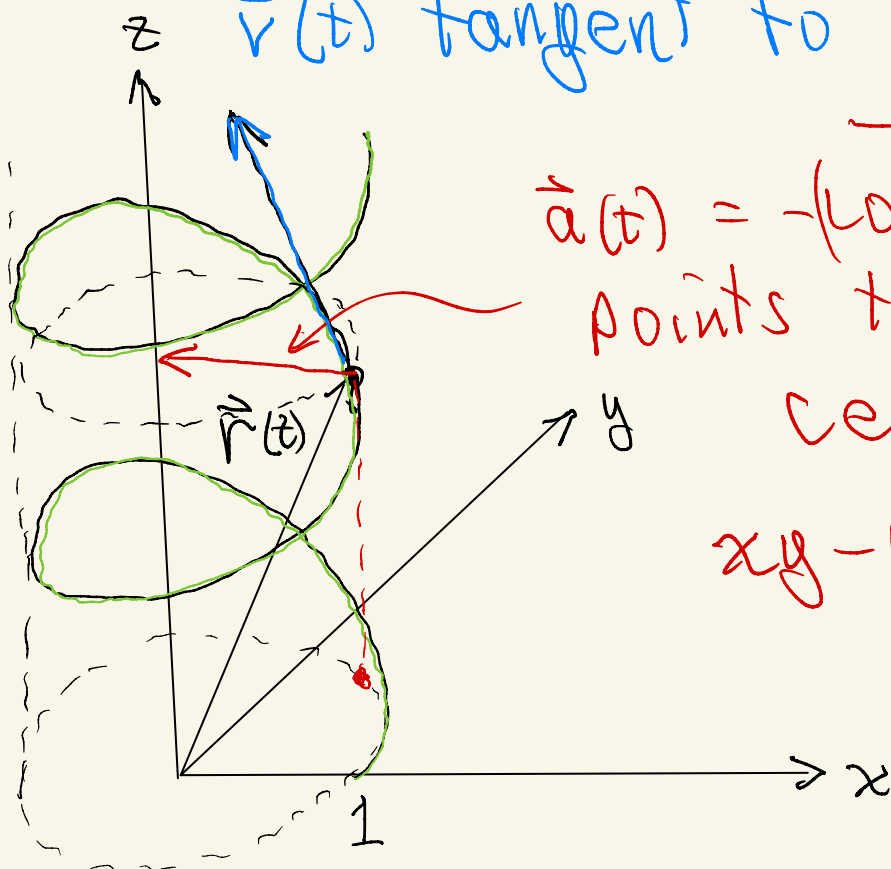 z
v⃗(t) tangent to
a⃗(t) = -(co
points t
r⃗(t)
y
ce
xy-
x
1